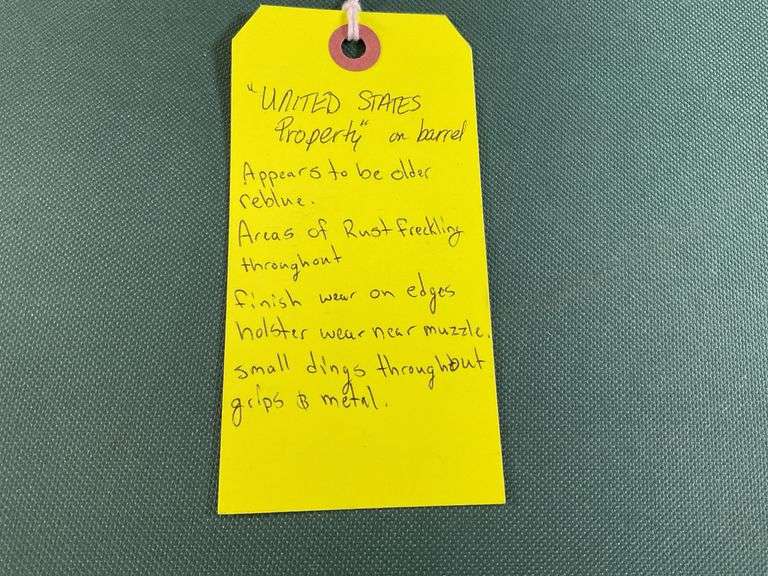 "UNITED STATES
Property" on barrel
Appears to be older
reblue.
Areas of Rust freckling
throughout
finish wear on edges
holster wear near muzzle.
small dings throughout
grips & metal.